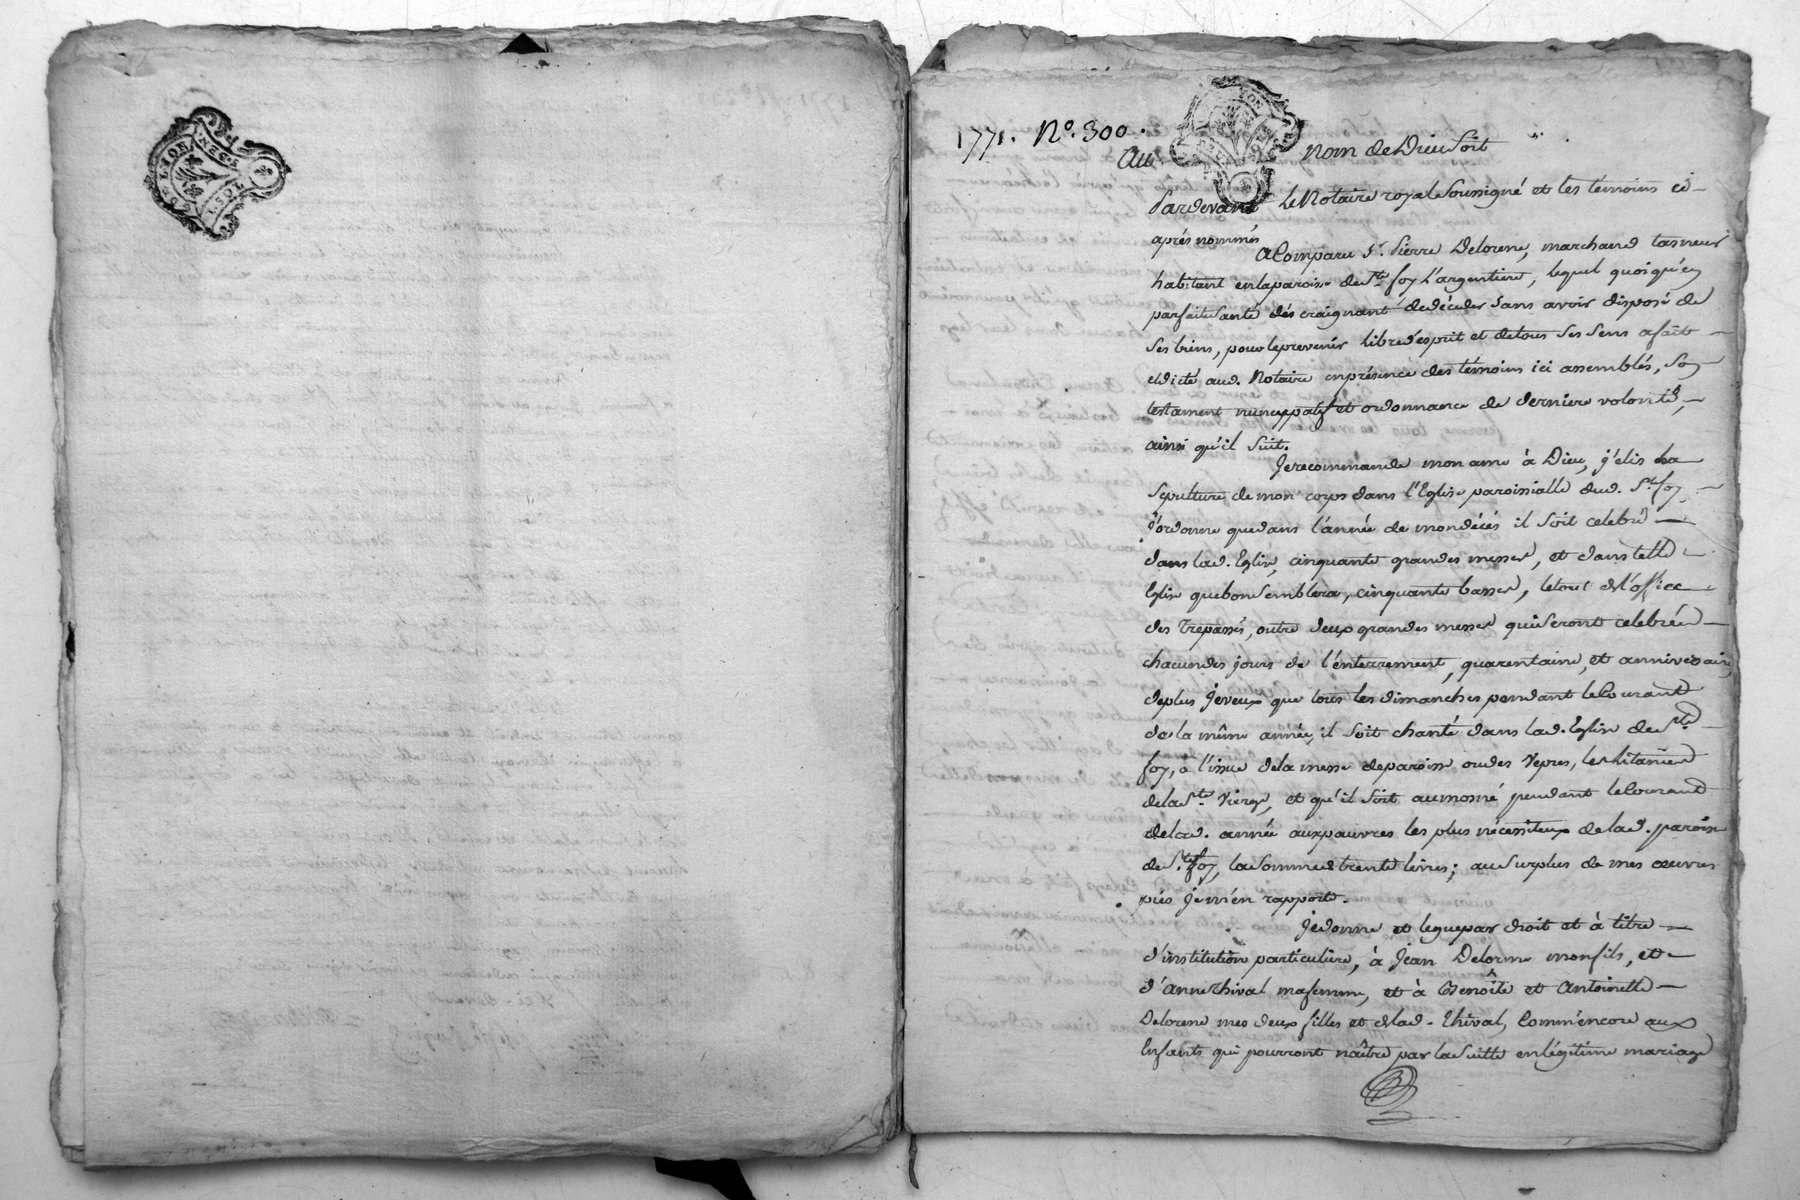 GEN. DE LION
1. SOL
1771. N.º 300.
Au nom de Dieu Soit
Pardevant Le Notaire royal Soussigné et les témoins ci-
après nommés
A Comparu Sr. Pierre Delorme, marchand tanneur
habitant en la paroisse de Ste. foy L'argentiere, lequel quoiqu'en
parfaite Santé craignant de décéder Sans avoir disposé de
Ses biens, pour le prevenir libre d'esprit et de tous Ses Sens a fait
et dicté aud. Notaire en présence des témoins ici assemblés, Son
testament nuncupatif et ordonnance de derniere volonté,
ainsi qu'il Suit.
Je recommande mon ame à Dieu, j'elis la
Sepulture de mon corps dans l'Eglise paroissialle dud. Ste. foy
J'ordonne que dans l'année de mon décés il Soit celebré
dans lad. Eglise, cinquante grandes messes, et dans telle
Eglise que bon Semblera, cinquante basses, le tout de l'office
des Trepassés, outre deux grandes messes qui Seront celebrées
chacun des jours de l'enterrement, quarentaine, et anniversaire
de plus Je veux que tous les dimanches pendant le Courant
de la même année, il Soit chanté dans lad. Eglise de Ste.
foy, à l'issue de la messe de paroisse ou des Vepres, les Litanies
de la Ste. Vierge, et qu'il Soit aumosné pendant le Courant
de lad. année aux pauvres les plus nécessiteux de lad. paroisse
de Ste. foy, la Somme de trente livres; au Surplus de mes œuvres
pies Je m'en rapporte.
Je donne et legue par droit et à titre
d'institution particuliere, à Jean Delorme mon fils, et
d'Anne Thival ma femme, et à Benoîte et Antoinette
Delorme mes deux filles et de lad. Thival, Comm'encore aux
Enfants qui pourront naître par la Suitte en légitime mariage